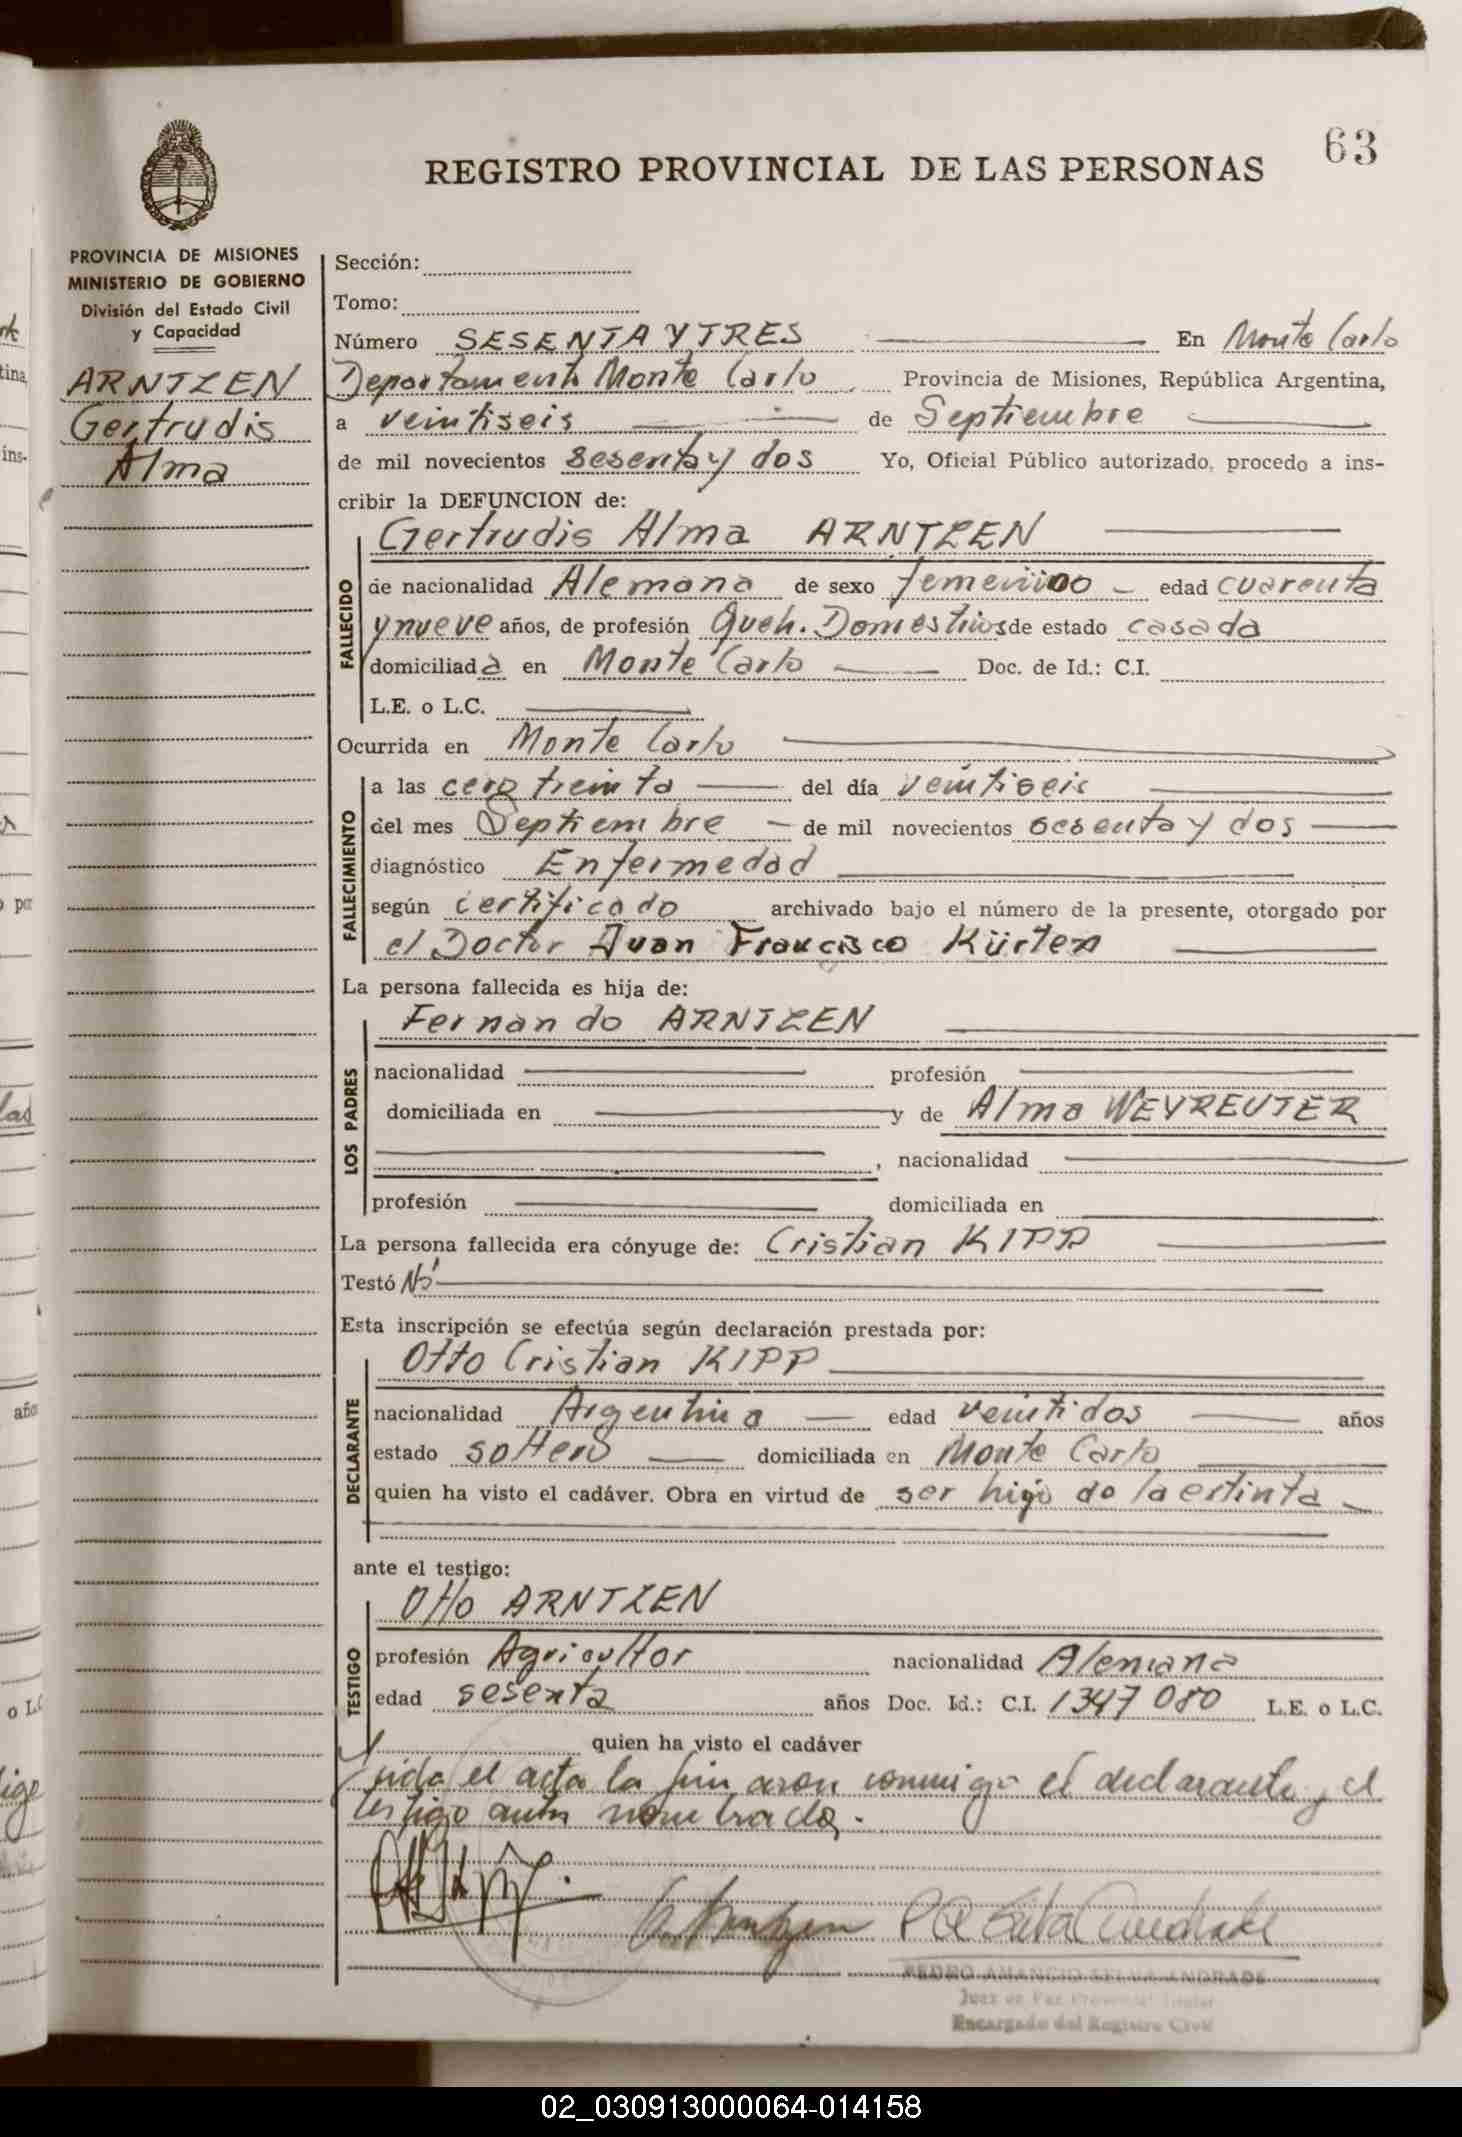 63
REGISTRO PROVINCIAL DE LAS PERSONAS
PROVINCIA DE MISIONES
MINISTERIO DE GOBIERNO
División del Estado Civil
y Capacidad
ARNTZEN
Gertrudis
Alma
Sección:
Tomo:
Número SESENTA Y TRES En Monte Carlo
Departamento Monte Carlo Provincia de Misiones, República Argentina,
a veintiseis de Septiembre
de mil novecientos sesenta y dos Yo, Oficial Público autorizado, procedo a ins-
cribir la DEFUNCION de:
FALLECIDO
Gertrudis Alma ARNTZEN
de nacionalidad Alemana de sexo femenino edad cuarenta
y nueve años, de profesión Queh. Domesticos de estado casada
domiciliada en Monte Carlo Doc. de Id.: C.I.
L.E. o L.C.
Ocurrida en Monte Carlo
FALLECIMIENTO
a las cero treinta del día veintiseis
del mes Septiembre de mil novecientos sesenta y dos
diagnóstico Enfermedad
según certificado archivado bajo el número de la presente, otorgado por
el Doctor Juan Francisco Kürten
La persona fallecida es hija de:
LOS PADRES
Fernando ARNTZEN
nacionalidad profesión
domiciliada en y de Alma WEYREUTER
, nacionalidad
profesión domiciliada en
La persona fallecida era cónyuge de: Cristian KIPP
Testó No
Esta inscripción se efectúa según declaración prestada por:
DECLARANTE
Otto Cristian KIPP
nacionalidad Argentina edad veintidos años
estado soltero domiciliada en Monte Carlo
quien ha visto el cadáver. Obra en virtud de ser hijo de la extinta
ante el testigo:
TESTIGO
Otto ARNTZEN
profesión Agricultor nacionalidad Alemana
edad sesenta años Doc. Id.: C.I. 1347080 L.E. o L.C.
quien ha visto el cadáver
el acta la firmaron conmigo el declarante y el
testigo antes nombrado.
PEDRO AMANCIO SELVA ANDRADE
Juez de Paz Provincial Titular
Encargado del Registro Civil
02_030913000064-014158